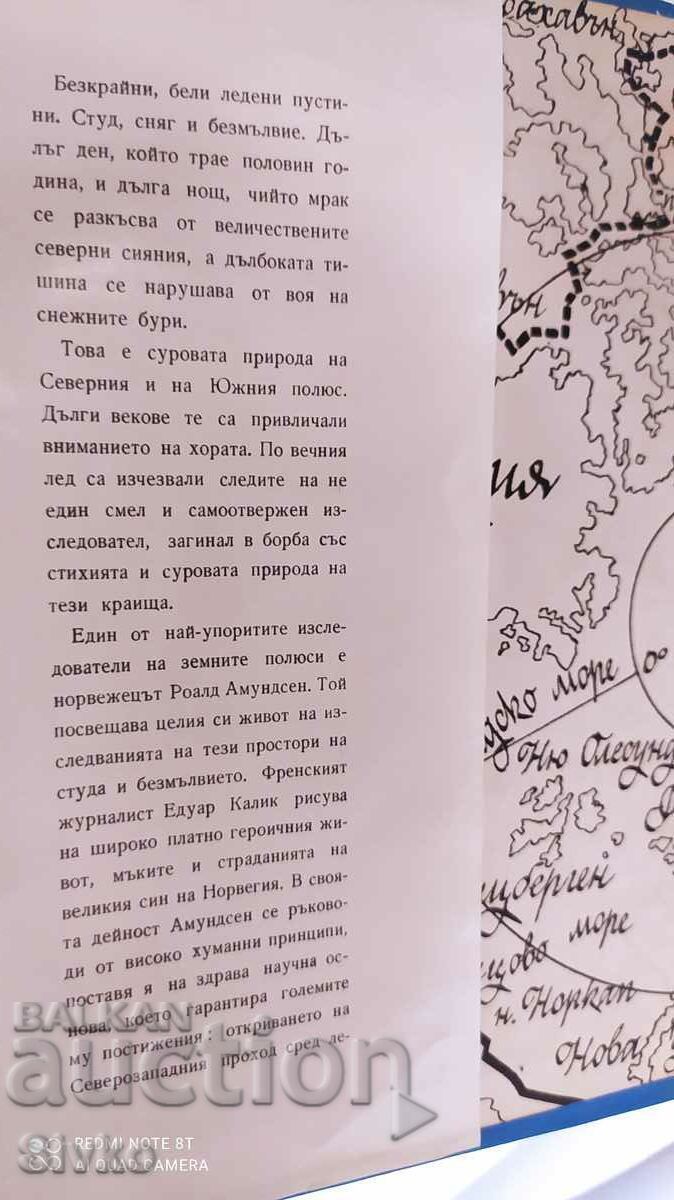 Безкрайни, бели ледени пусти-
ни. Студ, сняг и безмълвие. Дъ-
лъг ден, който трае половин го-
дина, и дълга нощ, чийто мрак
се разкъсва от величествените
северни сияния, а дълбоката ти-
шина се нарушава от воя на
снежните бури.
Това е суровата природа на
Северния и на Южния полюс.
Дълги векове те са привличали
вниманието на хората. По вечния
лед са изчезвали следите на не
един смел и самоотвержен из-
следовател, загинал в борба със
стихията и суровата природа на
тези краища.
Един от най-упоритите изсле-
дователи на земните полюси е
норвежецът Роалд Амундсен. Той
посвещава целия си живот на из-
следванията на тези простори на
студа и безмълвието. Френският
журналист Едуар Калик рисува
на широко платно героичния жи-
вот, мъките и страданията на
великия син на Норвегия. В своя-
та дейност Амундсен се ръково-
ди от високо хуманни принципи,
поставя я на здрава научна ос-
нова, което гарантира големите
му постижения: откриването на
Северозападния проход сред ле-
ия
море 0°
Ню Олесунд
море
н. Норкап
Нова
BALKAN
auction
REDMI NOTE 8T
AI QUAD CAMERA
Sivko